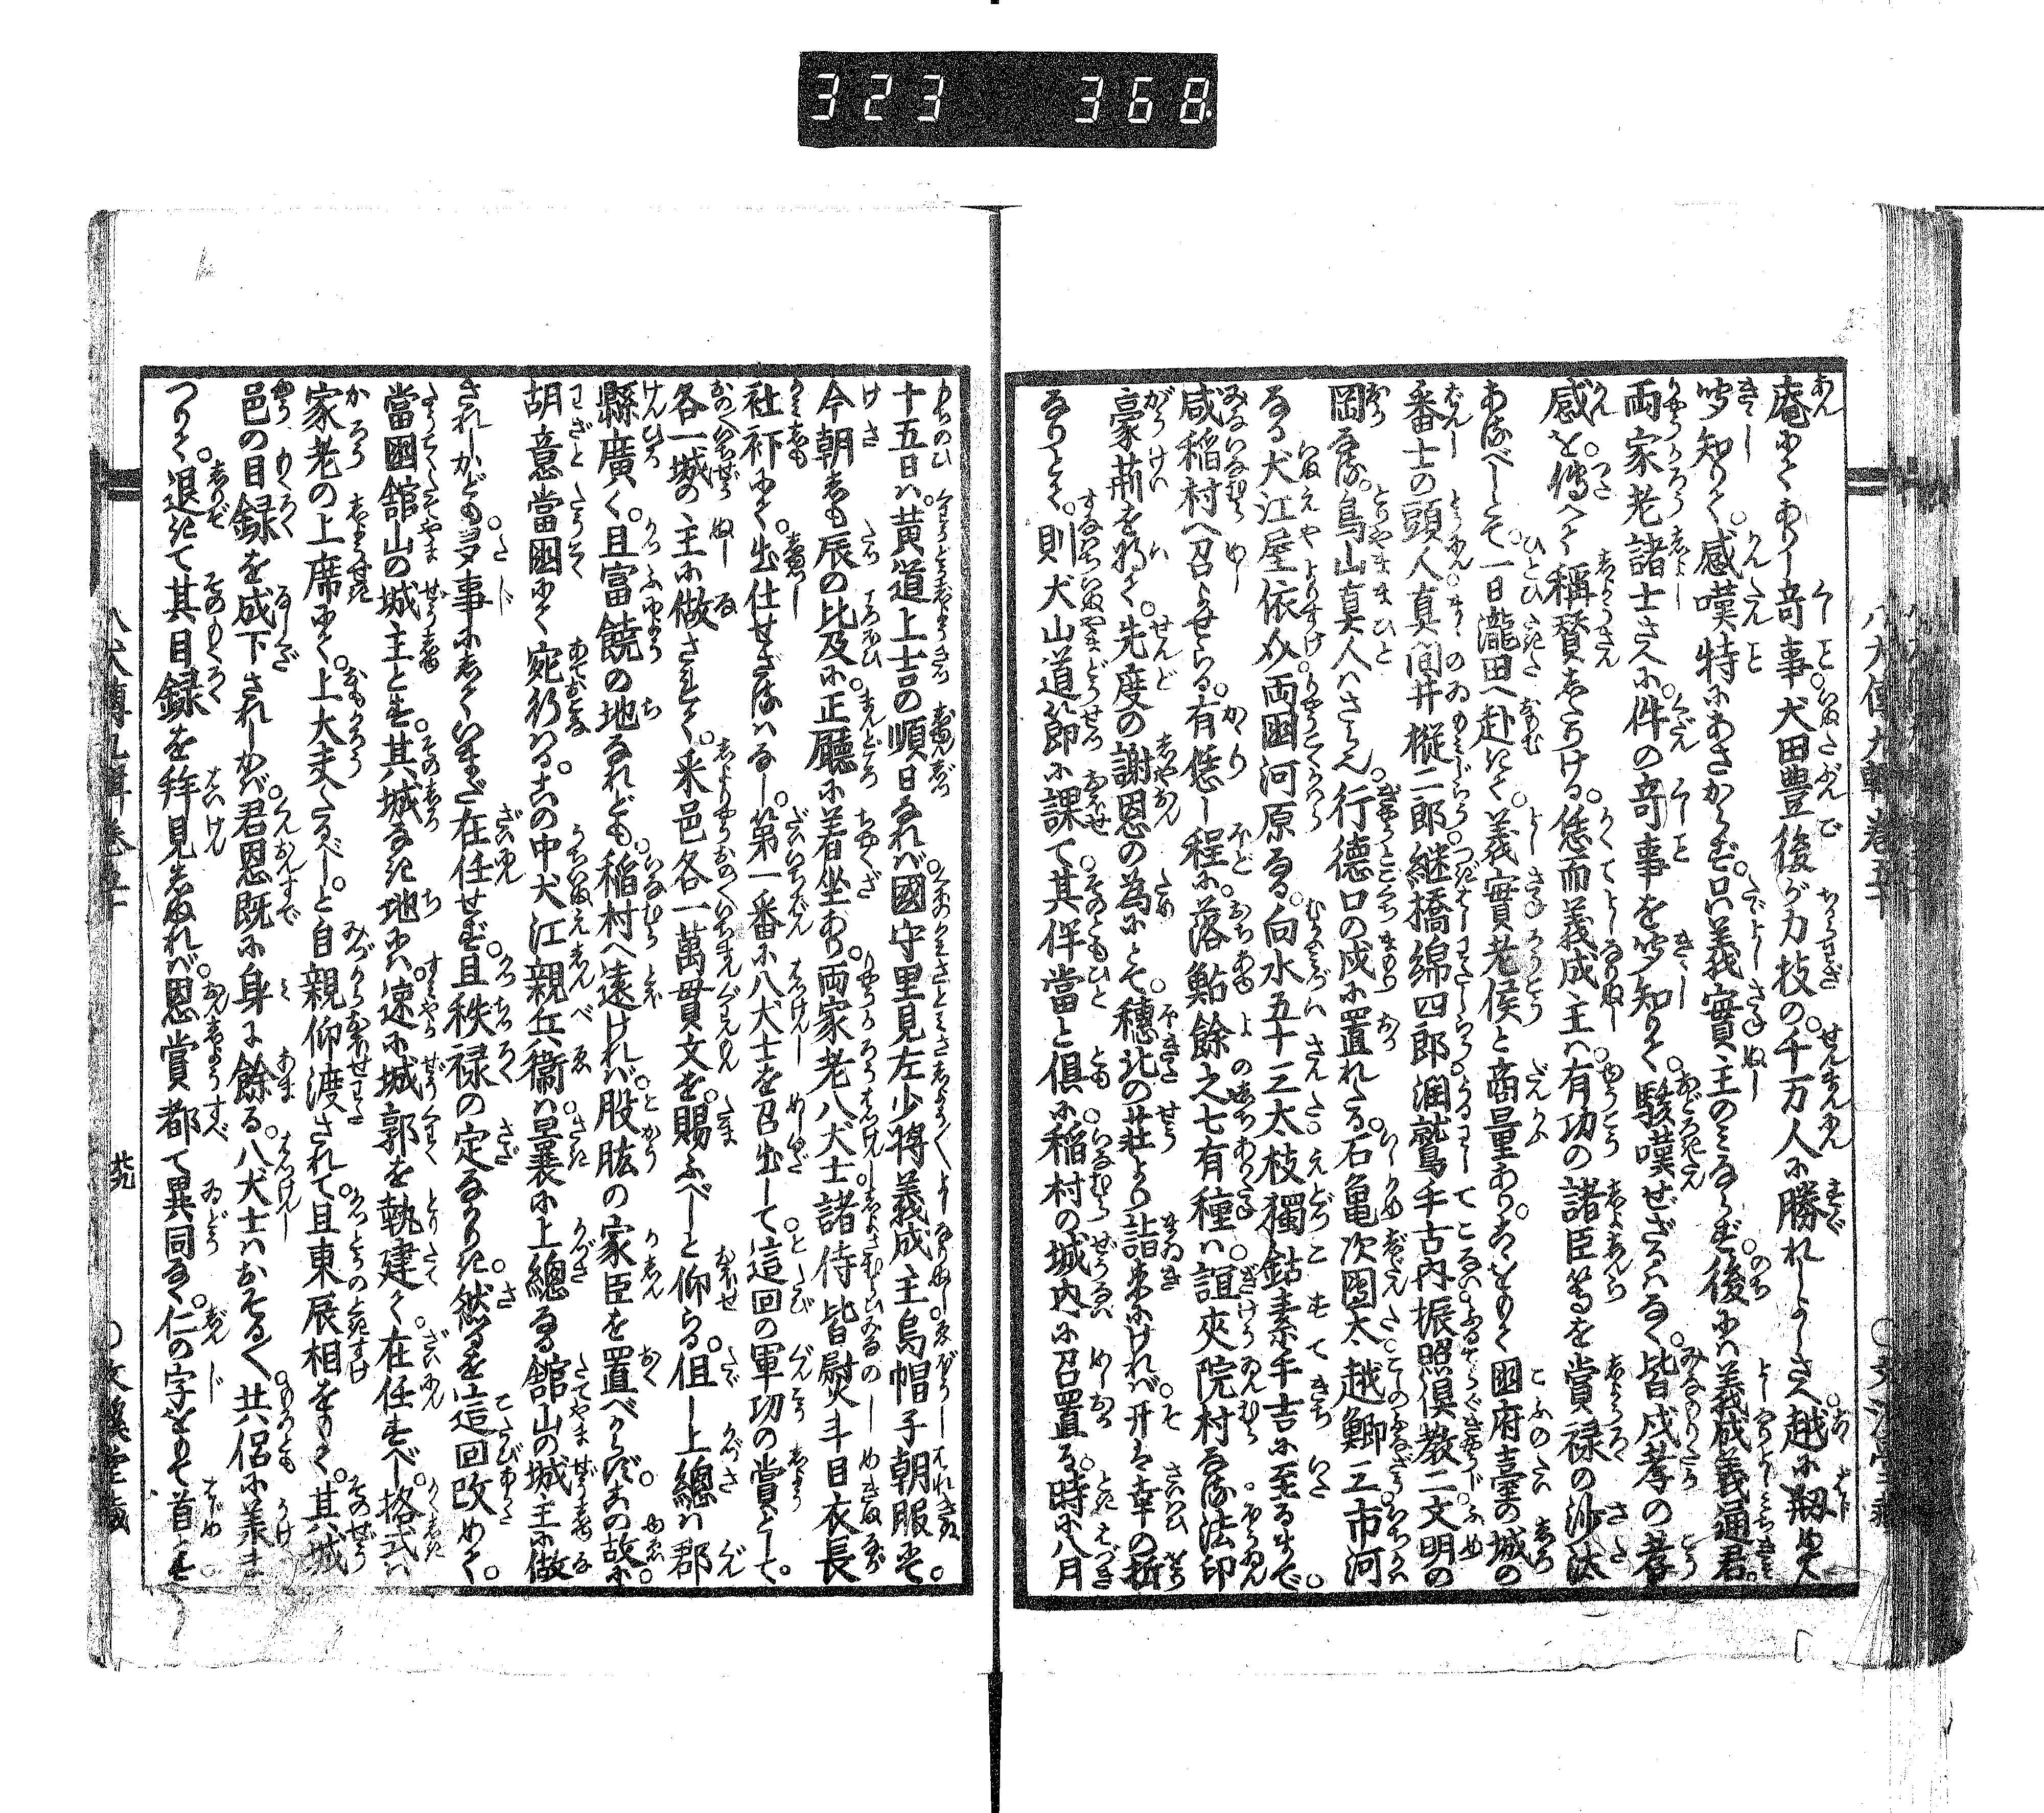 323 368
庵にてありし奇事犬田豊後が力技の千万人に勝れしよしさへ越に劔め大
聞知りて感嘆特にあさからず只義實主のみならず後には義成義通君
両家老諸士さへに件の奇事を聞知りて駭嘆せざるはなく皆戍孝の孝
感を傳へて稱賛したりける恁而義成主は有功の諸臣等を賞禄の沙汰
あるべしとて一日瀧田へ赴にて義實老侯と商量ありこゝをもて國府臺の城の
番士の頭人真間井樅二郎継橋綿四郎潤鷲手古内振照倶教二文明の
岡なる鳥山真人はさらん行徳口の戍に置れたる石亀次團太越鯽三市河
なる犬江屋依介両國河原なる向水五十三太枝獨鈷素手吉に至るまで
咸稲村へ召よせらる有恁し程に落鮎餘之七有種は誼夾院村なる法印
豪荊を将て先度の謝恩の為にとて穂北の莊より詣来にければ开は幸の折
なりとて則犬山道節に課て其伴當と倶に稲村の城内に召置る時に八月
八犬傳九輯巻五十
十五日は黄道上吉の順日なれば國守里見左少将義成主烏帽子朝服にて
今朝しも辰の比及に正廳に着坐あり両家老八犬士諸侍皆熨斗目衣長
社衯にて出仕せざるはなし第一番に八犬士を召出して這回の軍功の賞として
各一城の主に做さまく釆邑各一萬貫文を賜ふべしと仰らる但し上總は郡
縣廣く且富饒の地なれども稲村へ遠ければ股肱の家臣を置べからずこの故に
胡意當國にて宛行はるこの中犬江親兵衞は曩に上總なる舘山の城主に做
されしかども多事にしていまだ在任せず且秩禄の定なかりき然るを這回改めて
當國舘山の城主とす其城なき地には速に城郭を執建て在任すべし格式は
家老の上席にて上大夫たるべしと自親仰渡されて且東辰相をもて其城
邑の目録を成下されしかば君恩既に身に餘る八犬士はおそる〳〵共侶に羕ま
つりて退きて其目録を拜見しぬれば恩賞都て異同なく仁の字をもて首とす
八犬傳九輯巻五十